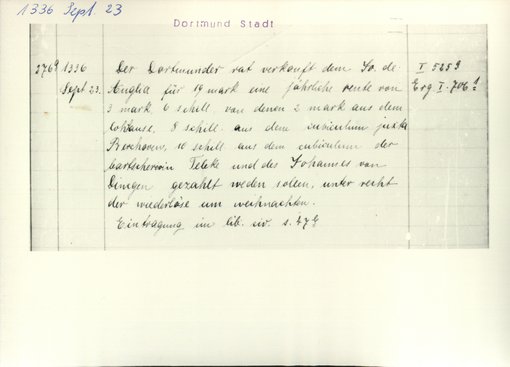 1336 Sept. 23
Dortmund Stadt
276a 1336 Der Dortmunder rat verkauft dem Jo. de I 525a
Sept. 23. Anglia für 19 mark eine jährliche rente von Erg I. 706
3 mark 6 schill. von denen 2 mark aus dem
lohhause, 8 schill. aus dem cubiculum juxta
10 schill. aus dem cubiculum der
bartschererin Teleke und des Johannes von
gezahlt weden sollen, unter recht
der wiederlöse um weihnachten.
Eintragung im lib. civ. s.